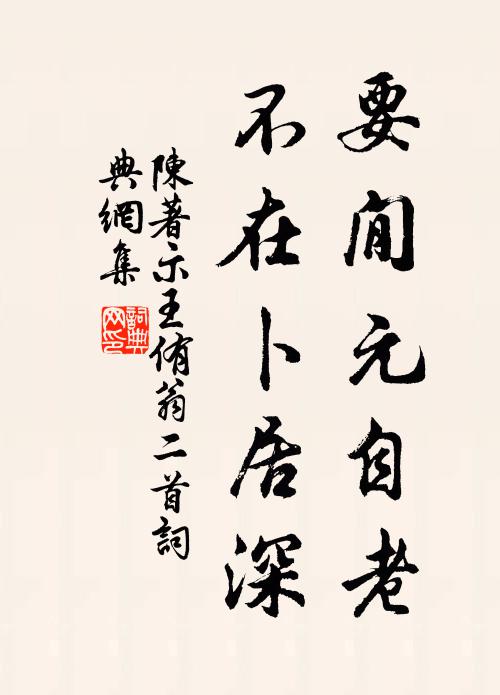 要閒元自老
不在卜居深
陳著示王侑翁二首詞
典網集
詞典
网印